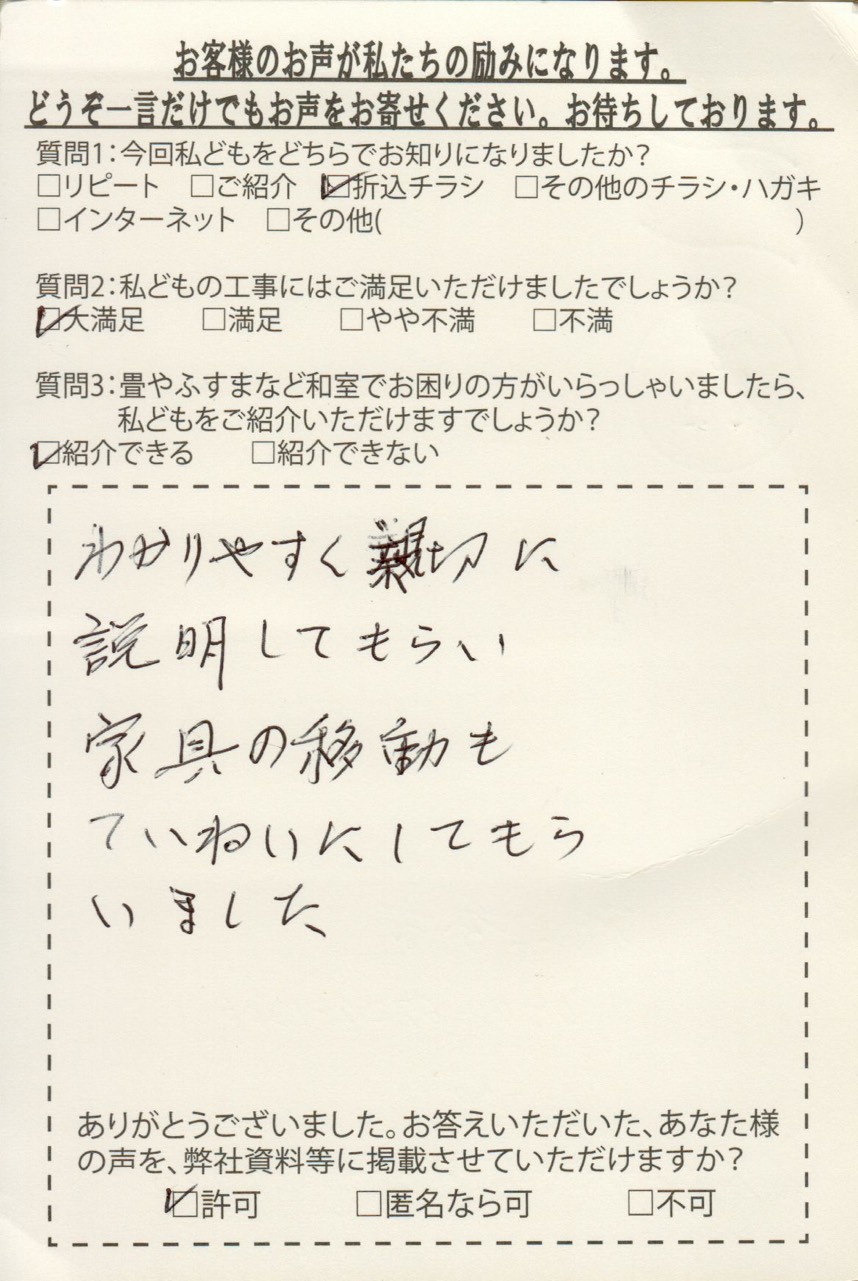 お客様のお声が私たちの励みになります。
どうぞ一言だけでもお声をお寄せください。お待ちしております。
質問1：今回私どもをどちらでお知りになりましたか？
□リピート　□ご紹介　☑折込チラシ　□その他のチラシ・ハガキ
□インターネット　□その他(　　　　　　　　　　　　　　　)
質問2：私どもの工事にはご満足いただけましたでしょうか？
☑大満足　　□満足　　□やや不満　　□不満
質問3：畳やふすまなど和室でお困りの方がいらっしゃいましたら、
私どもをご紹介いただけますでしょうか？
☑紹介できる　　□紹介できない
わかりやすく親切に
説明してもらい
家具の移動も
ていねいにしてもら
いました
ありがとうございました。お答えいただいた、あなた様
の声を、弊社資料等に掲載させていただけますか？
☑許可　　　□匿名なら可　　　□不可